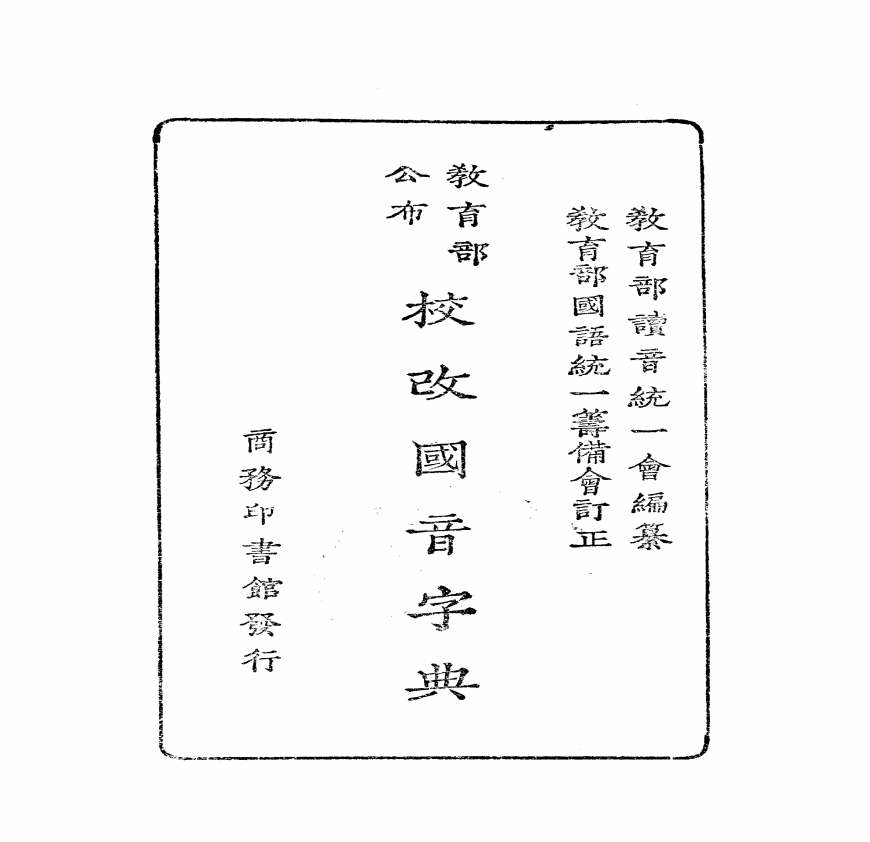 教育部讀音統一會編纂
教育部國語統一籌備會訂正
教育部
公布
校改國音字典
商務印書館發行